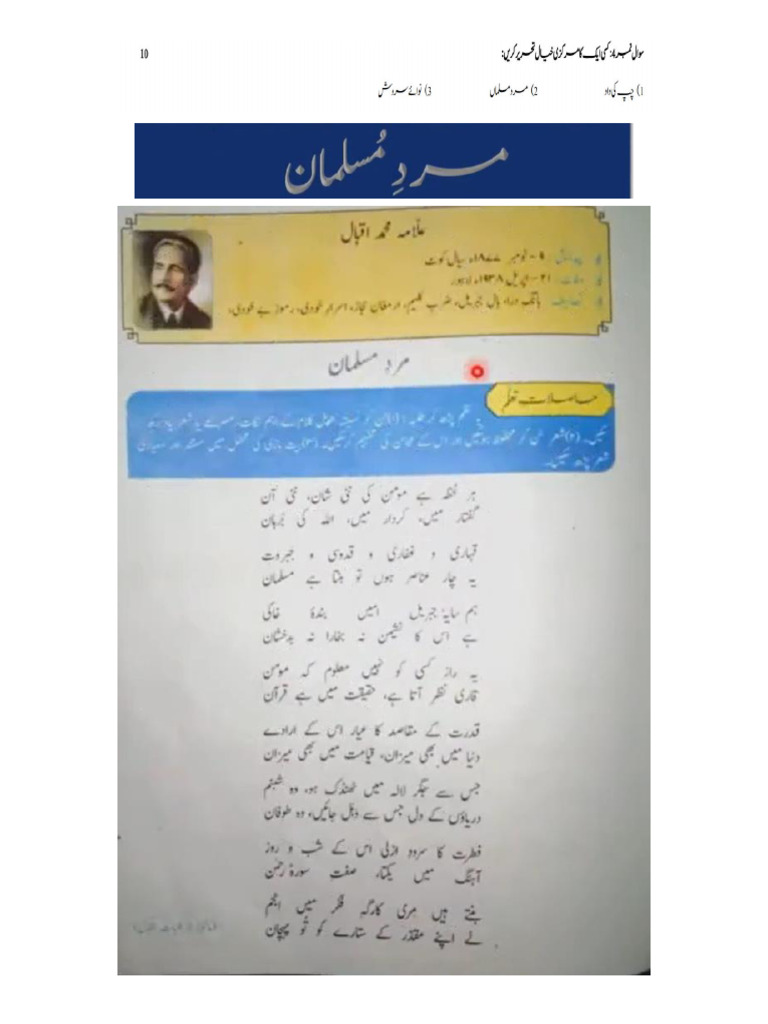 سوال نمبر ۴: کسی ایک کا مرکزی خیال تحریر کریں: 10
1) چپ کی داد 2) مرد مسلماں 3) نوائے سروش
مردِ مُسلمان
علّامہ محمد اقبال
پیدائش: ۹ - نومبر ۱۸۷۷ء، سیال کوٹ
وفات: ۲۱ - اپریل ۱۹۳۸ء، لاہور
تصانیف: بانگِ درا، بالِ جبریل، ضربِ کلیم، ارمغانِ حجاز، اسرارِ خودی، رموزِ بے خودی،
مردِ مسلمان
حاصلاتِ تعلّم
یہ نظم پڑھ کر طلبہ: (۱)
سکیں۔ (۲) شعر سُن کر محظوظ ہو سکیں اور اس کے محاسن کی تفہیم کر سکیں۔ (۳) بیت بازی کی محفل میں مستند اور معیاری
شعر پڑھ سکیں۔
ہر لحظہ ہے مومن کی نئی شان، نئی آن
گفتار میں، کردار میں، اللہ کی بُرہان
قہاری و غفاری و قدوسی و جبروت
یہ چار عناصر ہوں تو بنتا ہے مسلمان
ہم سایۂ جبریلِ امیں بندۂ خاکی
ہے اس کا نشیمن نہ بخارا نہ بدخشان
یہ راز کسی کو نہیں معلوم کہ مومن
قاری نظر آتا ہے، حقیقت میں ہے قرآن
قدرت کے مقاصد کا عیار اس کے ارادے
دنیا میں بھی میزان، قیامت میں بھی میزان
جس سے جگرِ لالہ میں ٹھنڈک ہو، وہ شبنم
دریاؤں کے دل جس سے دہل جائیں، وہ طوفان
فطرت کا سرودِ ازلی اس کے شب و روز
آہنگ میں یکتا، صفتِ سورۂ رحمٰن
بنتے ہیں مری کارگہِ فکر میں انجم
لے اپنے مقدّر کے ستارے کو تُو پہچان